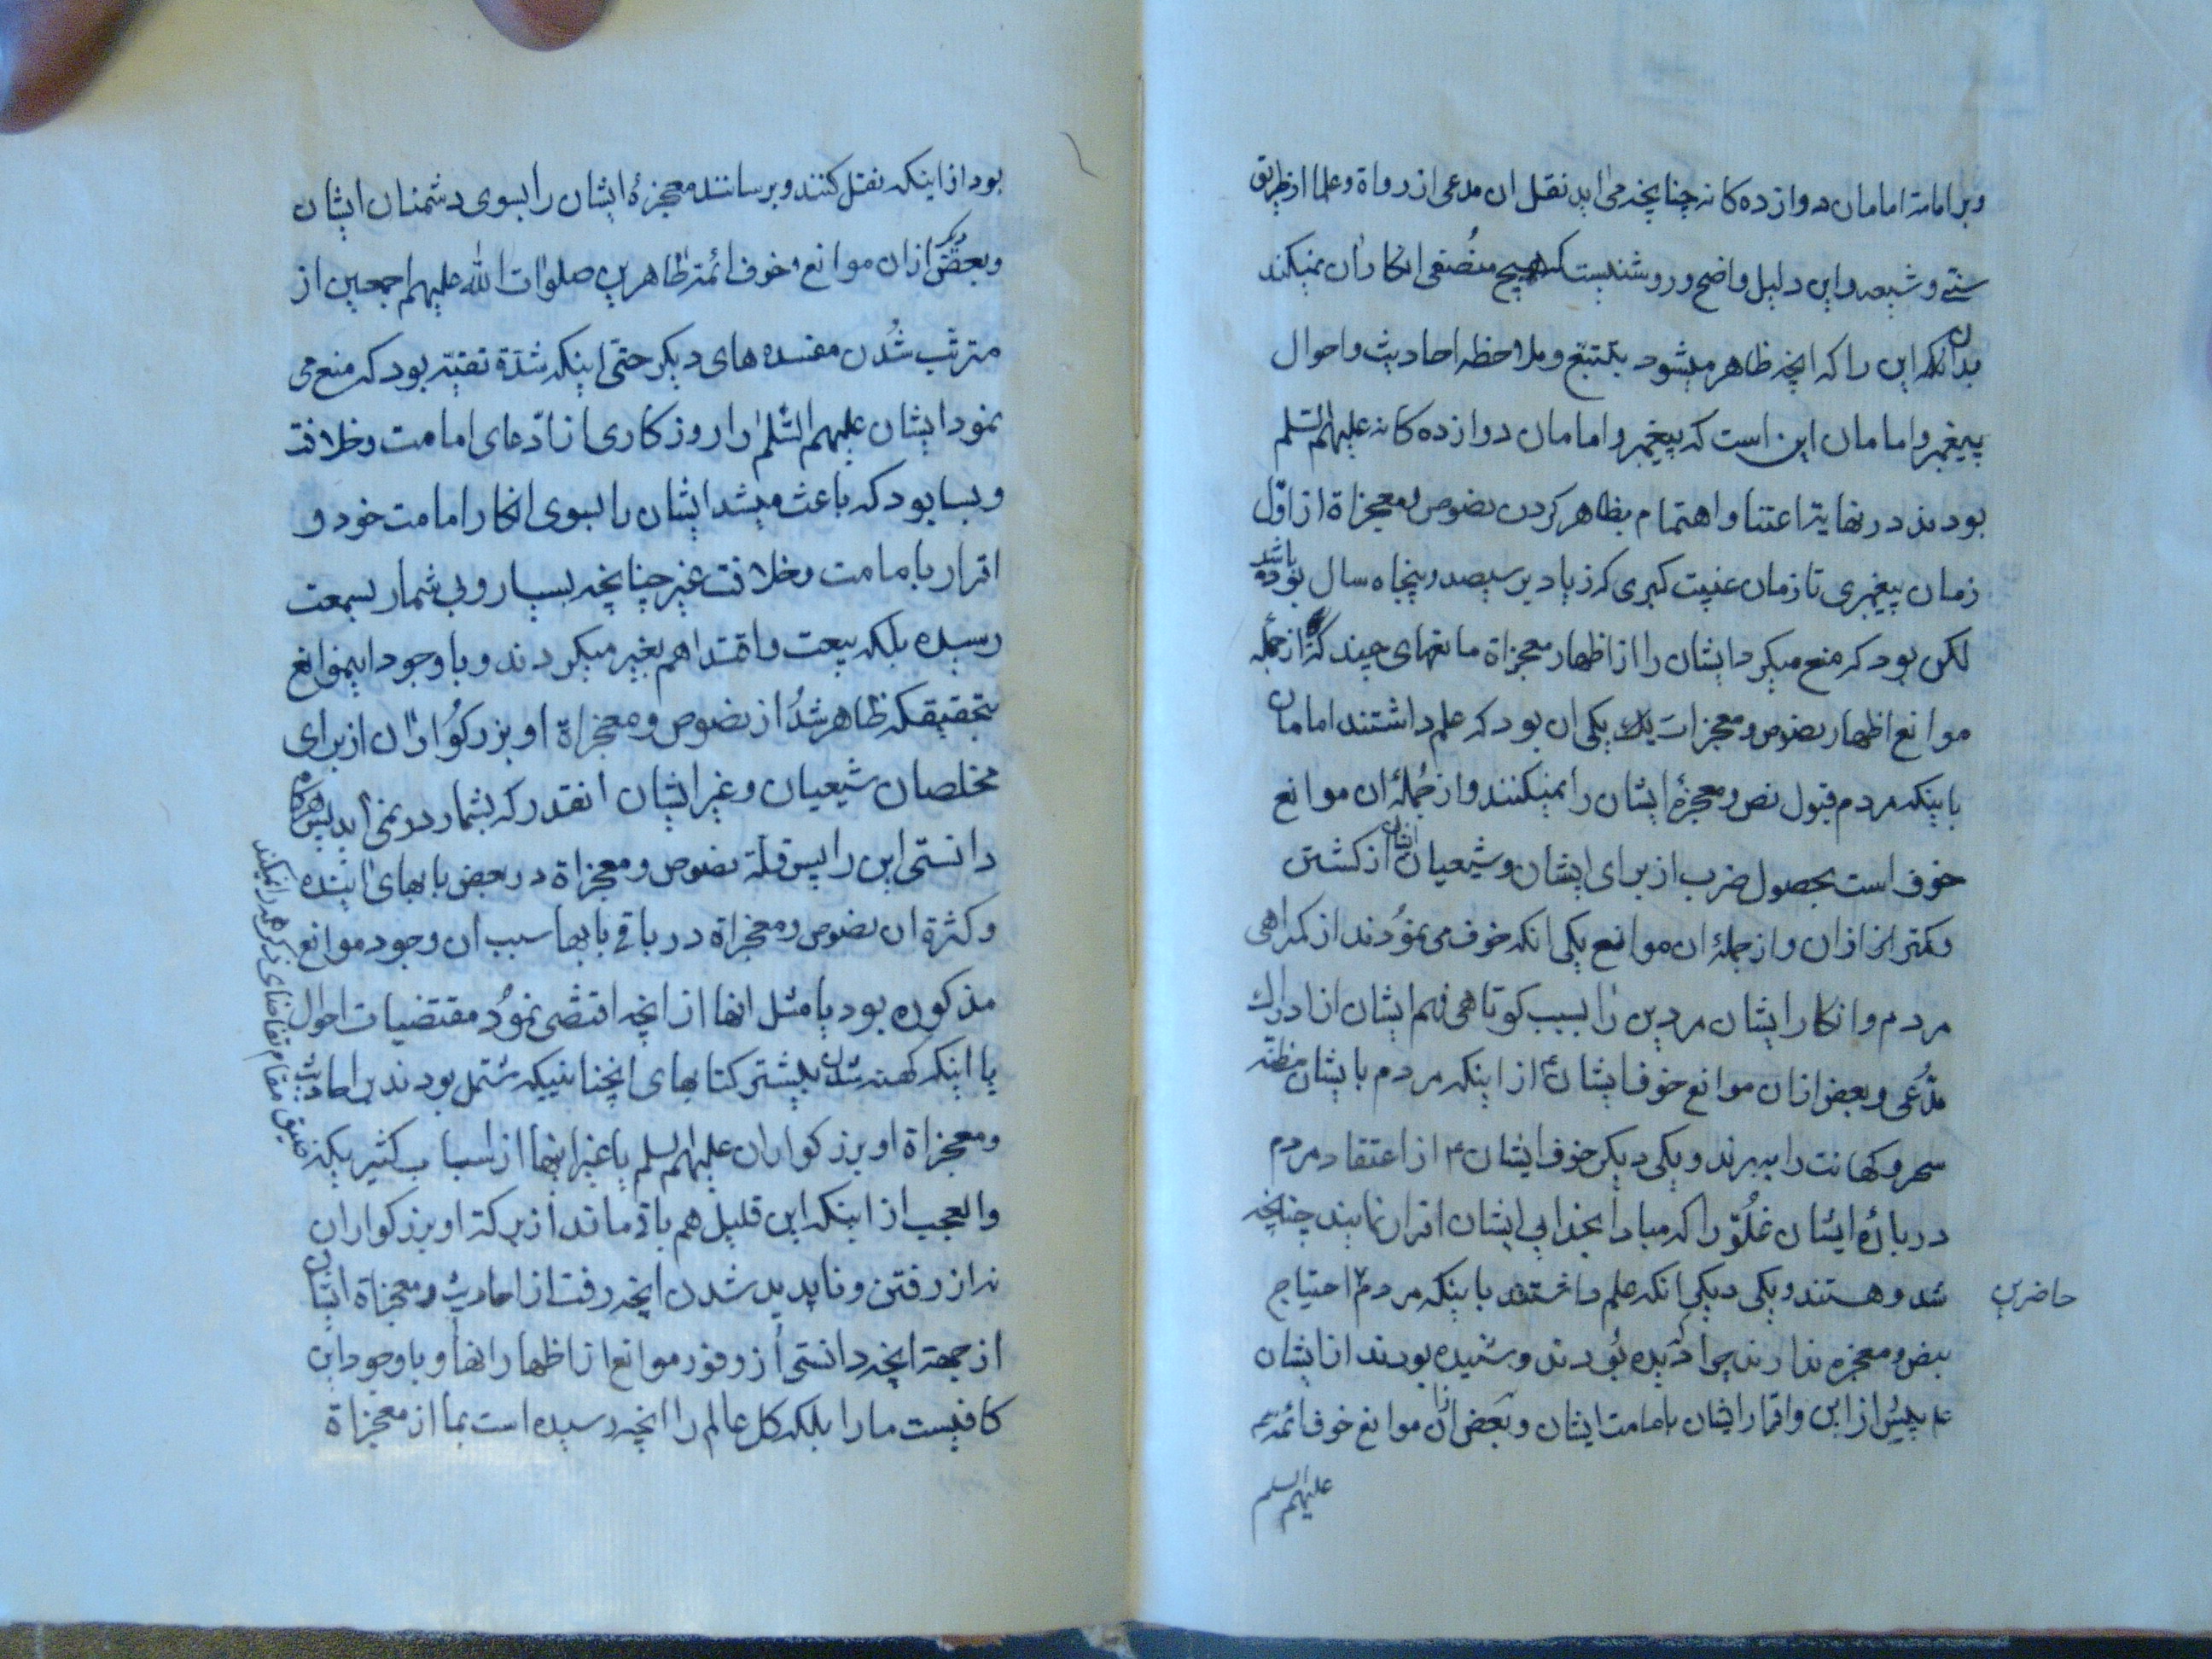 وبر امامت امامان دوازده کانه چنانچه می اید نقل ان مدعی از رواة وعلما از طریق
سنّی وشیعه واین دلیل واضح وروشنیست که هیچ منصفی انکار ان نمیکند
بدانکه این را که انچه ظاهر میشود بتتبّع وملاحظه احادیث واحوال
پیغمبر وامامان این است که پیغمبر وامامان دوازده کانه علیهم السّلم
بودند در نهایة اعتنا واهتمام بظاهر کردن نصوص ومعجزاة از اوّل
زمان پیغمبری تا زمان غیبت کبری که زیاد بر سیصد وپنجاه سال بوده باشد
لکن بود که منع میکرد ایشان را از اظهار معجزاة مانعهای چند که از جمله
موانع اظهار نصوص ومعجزات یکی ان بود که علم داشتند امامان
باینکه مردم قبول نص ومعجزۀ ایشان را نمیکنند واز جُملۀ ان موانع
خوف است بحصول ضرب از برای ایشان وشیعیان ایشان از کشتن
وکمتر از ان واز جملۀ ان موانع یکی انکه خوف می نمودند از کمراهی
مردم وانکار ایشان مر دین را بسبب کوتاهی فهم ایشان از ادراک
مدّعی وبعض از ان موانع خوف ایشان ع از اینکه مردم بایشان مظنّه
سحر وکهانت را ببرند ویکی دیکر خوف ایشان ع از اعتقاد مردم
در بارۀ ایشان غلُوّ را که مبادا بخدایی ایشان اقرار نمایند چنانچه
شد وهستند ویکی دیکر انکه علم داشتند باینکه مردم احتیاج
حاضرین
بنص ومعجزه ندارند چرا که دیده بُودند وشنیده بودند از ایشان
ع پیش از این واقرار ایشان بامامت ایشان وبَعض از ان موانع خوف ائمه
علیهم السلم
بود از اینکه نقل کنند وبرسانند معجزۀ ایشان را بسوی دشمنان ایشان
وبعض دیکر از ان موانع خوف ائمّۀ طاهرین صلوات الله علیهم اجمعین از
مترتّب شُدن مفسده های دیکر حتّی اینکه شدّة تقیّه بود که منع می
نمود ایشان علیهم السّلم را روزکاری از ادّعای امامت وخلافت
وبسا بود که باعث میشد ایشان را بسوی انکار امامت خود و
اقرار بامامت وخلافت غیر چنانچه بسیار وبی شمار بسمعت
رسیده بلکه بیعت واقتدا هم بغیر میکردند وبا وجود اینموانع
بتحقیقکه ظاهر شُد از نصوص ومعجزاة او بزرکوُاران از برای
مخلصان شیعیان وغیر ایشان انقدر که بشمار در نمی اید پس هرکاه
دانستی این را پس قلّة نصوص ومعجزاة در بعض بابهای اینده
وکثرة ان نصوص ومعجزاة در باقی بابها سبب ان وجود موانع
مذکوره بود یا مثل انها از انچه اقتضی نموُد مقتضیات احوال
یا اینکه کهنه شدن بیشتر کتابهای انچنانیکه مشتمل بودند بر احادیث
ومعجزاة او بزرکواران علیهم السلم یا غیر اینها از اسباب کثیر یکه
ضیق مقام تقاضای ذکر همه را نمیکند
والعجب از اینکه این قلیل هم باقی ماند از برکة او بزرکواران
نه از رفتن وناپدید شدن انچه رفت از احادیث ومعجزاة ایشان
از جهة انچه دانستی از وفور موانع از اظهار انها وبا وجود این
کافیست ما را بلکه کل عالم را انچه رسیده است بما از معجزاة